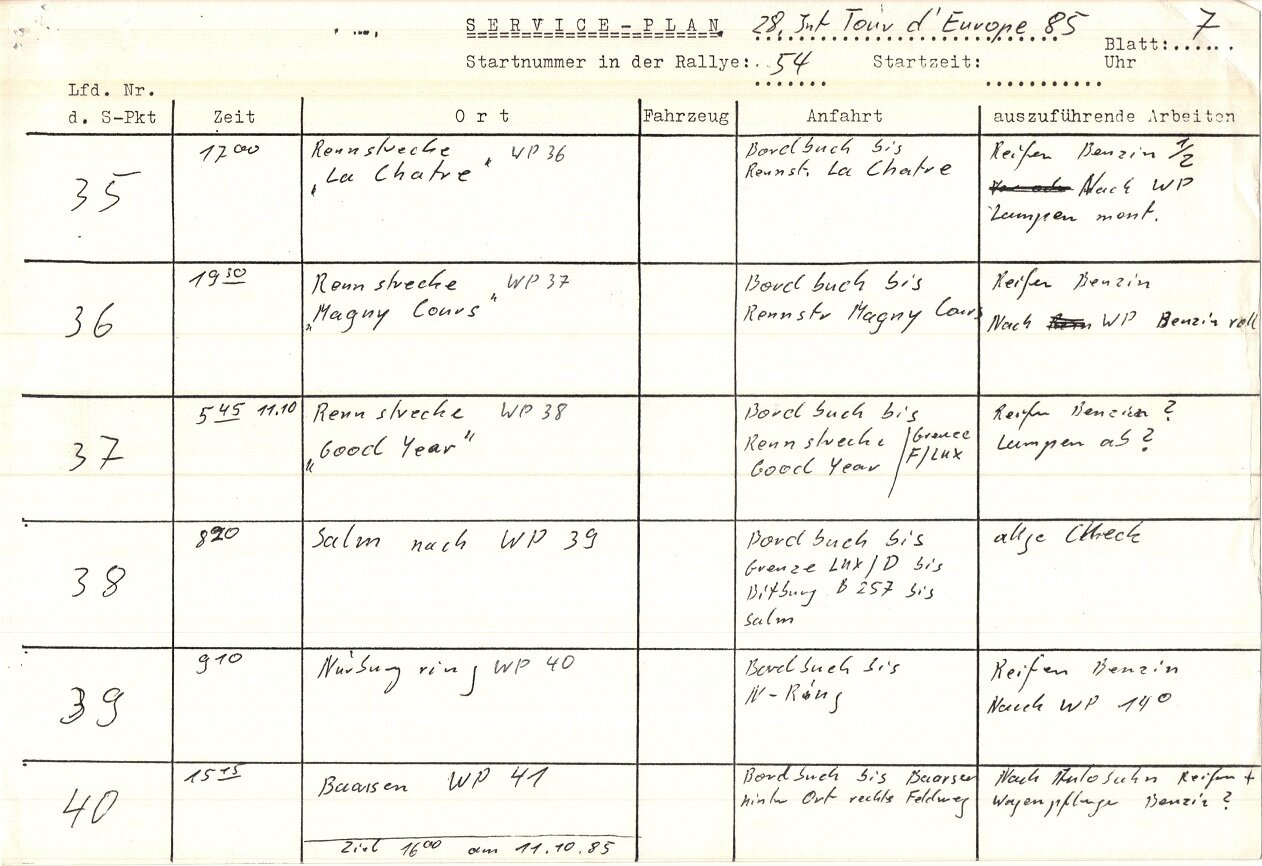 SERVICE-PLAN 28. Int Tour d'Europe 85
Blatt: 7
Startnummer in der Rallye: 54 Startzeit: Uhr
Lfd. Nr.
d. S-Pkt Zeit Ort Fahrzeug Anfahrt auszuführende Arbeiten
35
17 00
Rennstrecke WP 36
"La Chatre"
Bordbuch bis
Rennst. La Chatre
Reifen Benzin 1/2
Nach WP
Lampen mont.
36
19 30
Rennstrecke WP 37
"Magny Cours"
Bordbuch bis
Rennstr Magny Cours
Reifen Benzin
Nach WP Benzin voll
37
5 45 11.10
Rennstrecke WP 38
"Good Year"
Bordbuch bis
Rennstrecke / Grenze
Good Year / F/Lux
Reifen Benzin ?
Lampen ab ?
38
8 20
Salm nach WP 39
Bordbuch bis
Grenze Lux/D bis
Bitburg B 257 bis
Salm
allge Check
39
9 10
Nürburgring WP 40
Bordbuch bis
N-Ring
Reifen Benzin
Nach WP 14 0
40
15 15
Baarsen WP 41
Ziel 16 00 am 11.10.85
Bordbuch bis Baarsen
hinter Ort rechts Feldweg
Nach Autobahn Reifen +
Wagenpflege Benzin ?